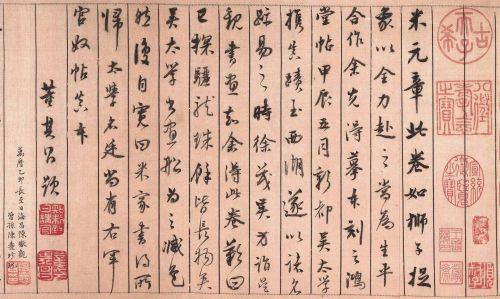 古希天子
米元章此卷如獅子捉
象以全力赴之當為生平
合作余先得摹本刻之鴻
堂帖甲辰五月新都吳太學
攜真蹟至西湖遂以諸名
跡易之時徐茂吳方詣吳
觀書畫知余得此卷歎曰
已探驪龍珠餘皆長物矣
吳太學書畫船為之減色
然復自寬曰米家書得所
歸太學名廷尚有右軍
官奴帖真本
董其昌題
萬曆乙卯長至日海昌陳觀
曾孫陳